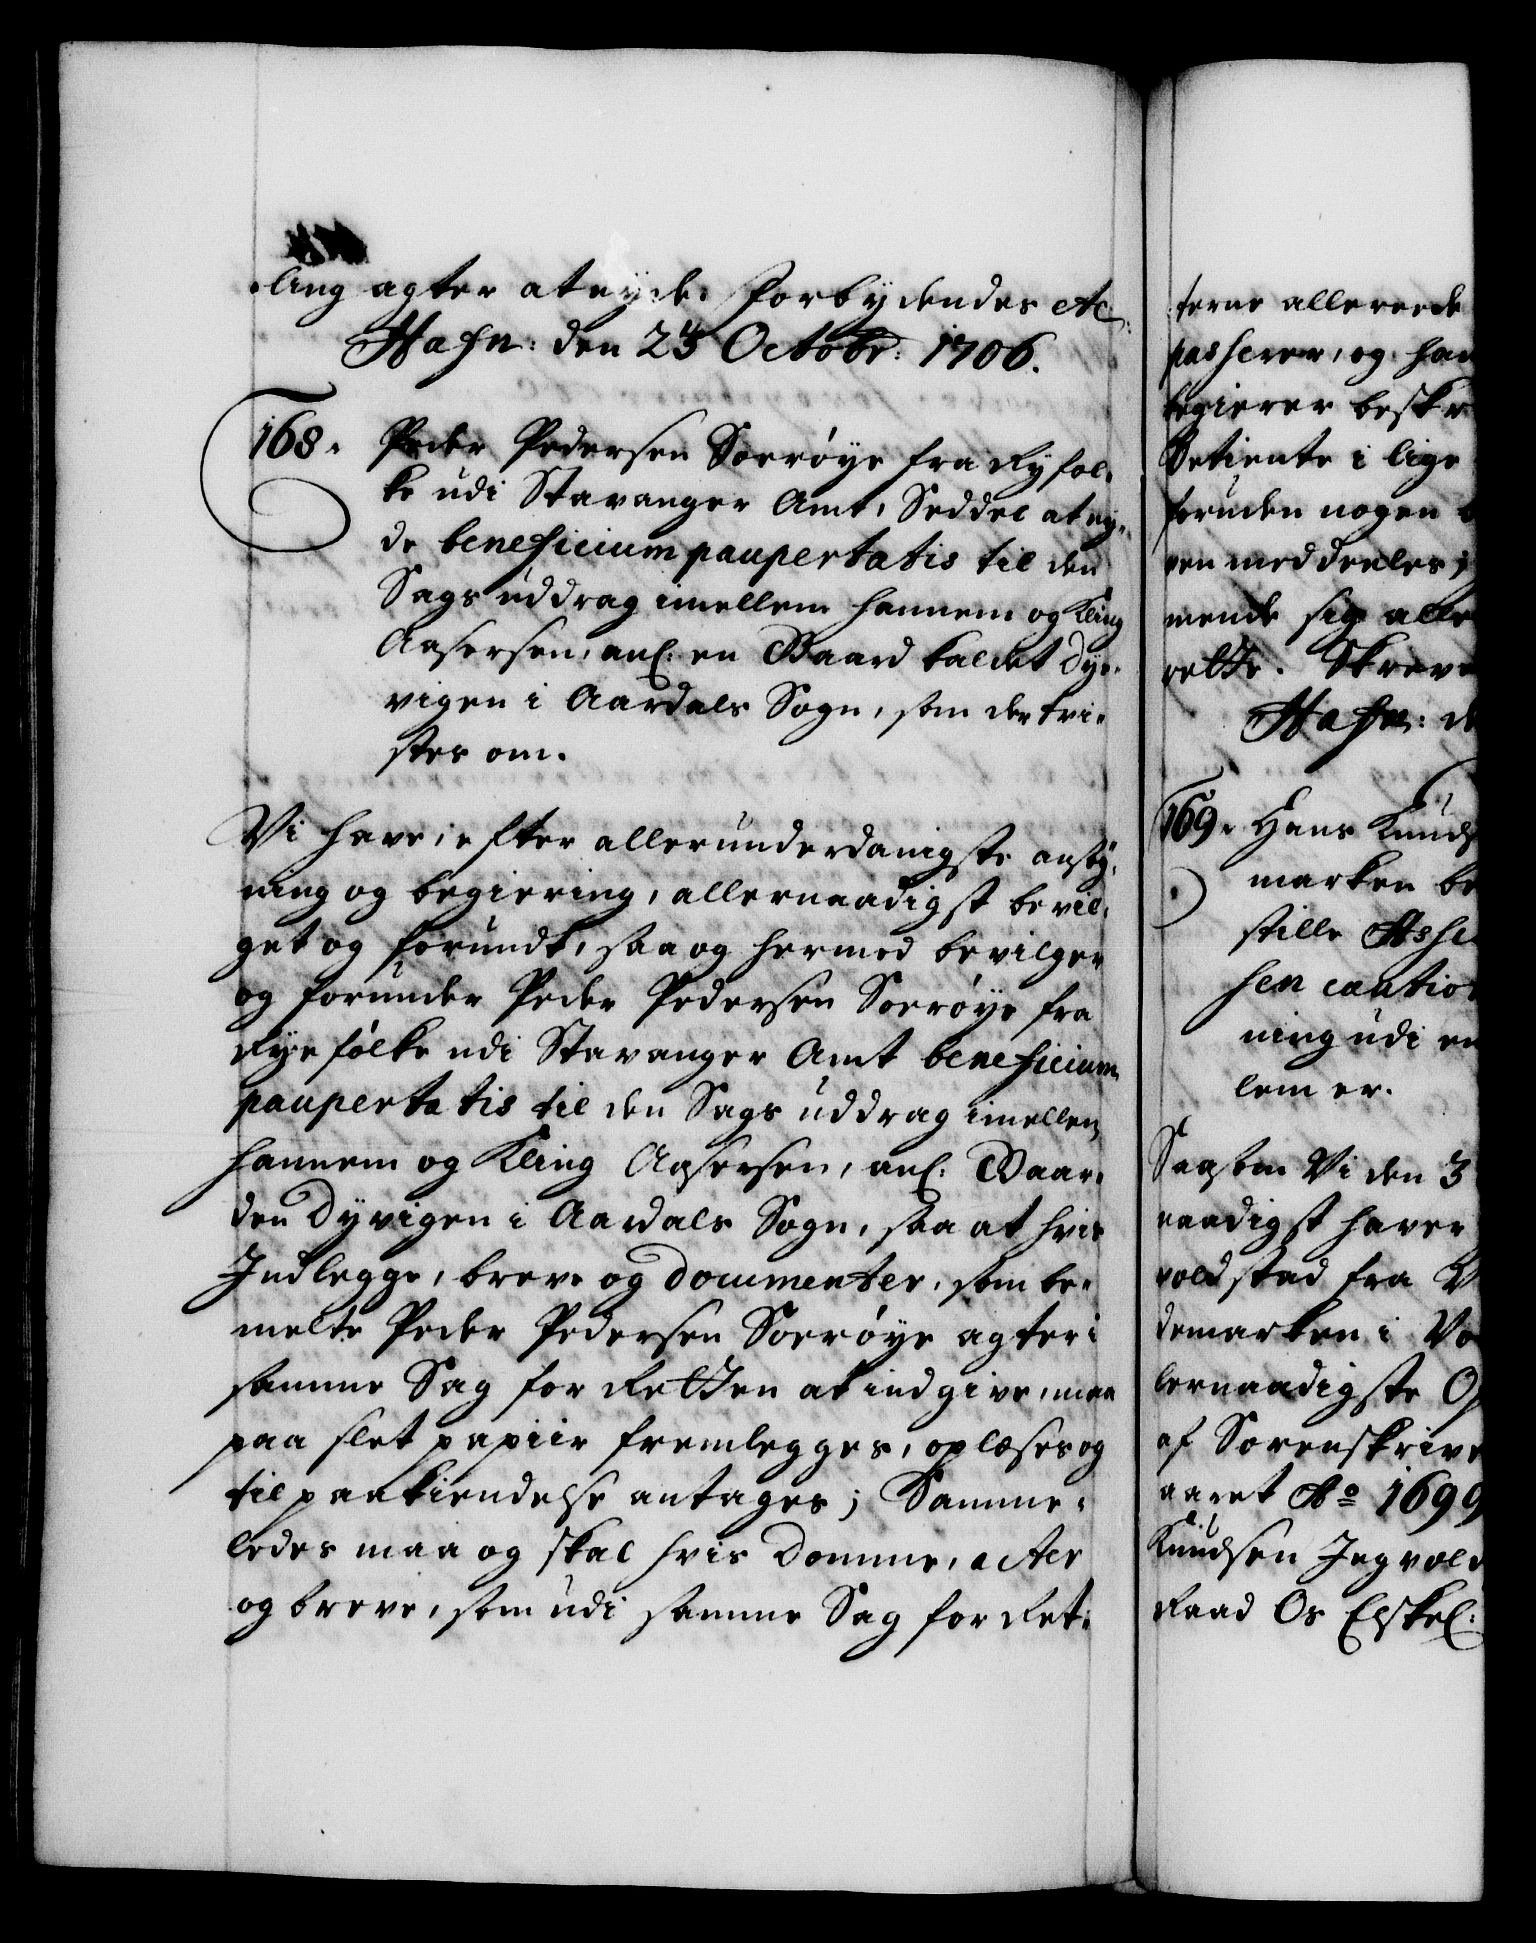 ling agter at nyde. Forbydendes etc.
Hafn: den 23 Octobr: 1706.
168. Peder Pedersen Soerøye fra Ryfol-
ke udi Stavanger Amt, Seddel at ny-
de beneficium paupertatis til den
Sags uddrag imellem hannem og Kling
Aasersen, anl: en Gaard kaldet Dye-
vigen i Aardals Sogn, som der tvi-
stes om.
Vi have, efter allerunderdanigste ansøg-
ning og begiering, allernaadigst bevil-
get og forundt, saa og hermed bevilger
og forunder Peder Pedersen Soerøye fra
Ryefolke udi Stavanger Amt beneficium
paupertatis til den Sags uddrag imellem
hannem og Kling Aasersen, anl: Gaar-
den Dyvigen i Aardals Sogn, saa at hvis
Indlegge, breve og documenter, som be-
melte Peder Pedersen Soerøye agter i
samme Sag for Retten at indgive, maa
paa slet papiir fremlegges, oplæses og
til paakiendelse antages; Samme-
ledes maa og skal hvis Domme, acter
og breve, som udi samme Sag for Ret-
terne allereede
passerer, og han
begierer beskr
Betiente i lige
foruden nogen
ven meddeeles;
mende sig alle
rette. Skreve
Hafn: d
169. Hans Knuds
marken be
stille Asse
sen caution
ning udi en
lem er.
Saasom Vi den 3
naadigst haver
vold stad fra
demarken i Vo
lernaadigste O
af Sorenskrive
aaret Ao 1699
Knudsen Ingvold
Raad Os Elskel: